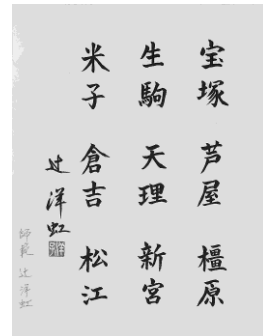 宝塚 芦屋 橿原
生駒 天理 新宮
米子 倉吉 松江
辻洋虹
師範 辻洋虹